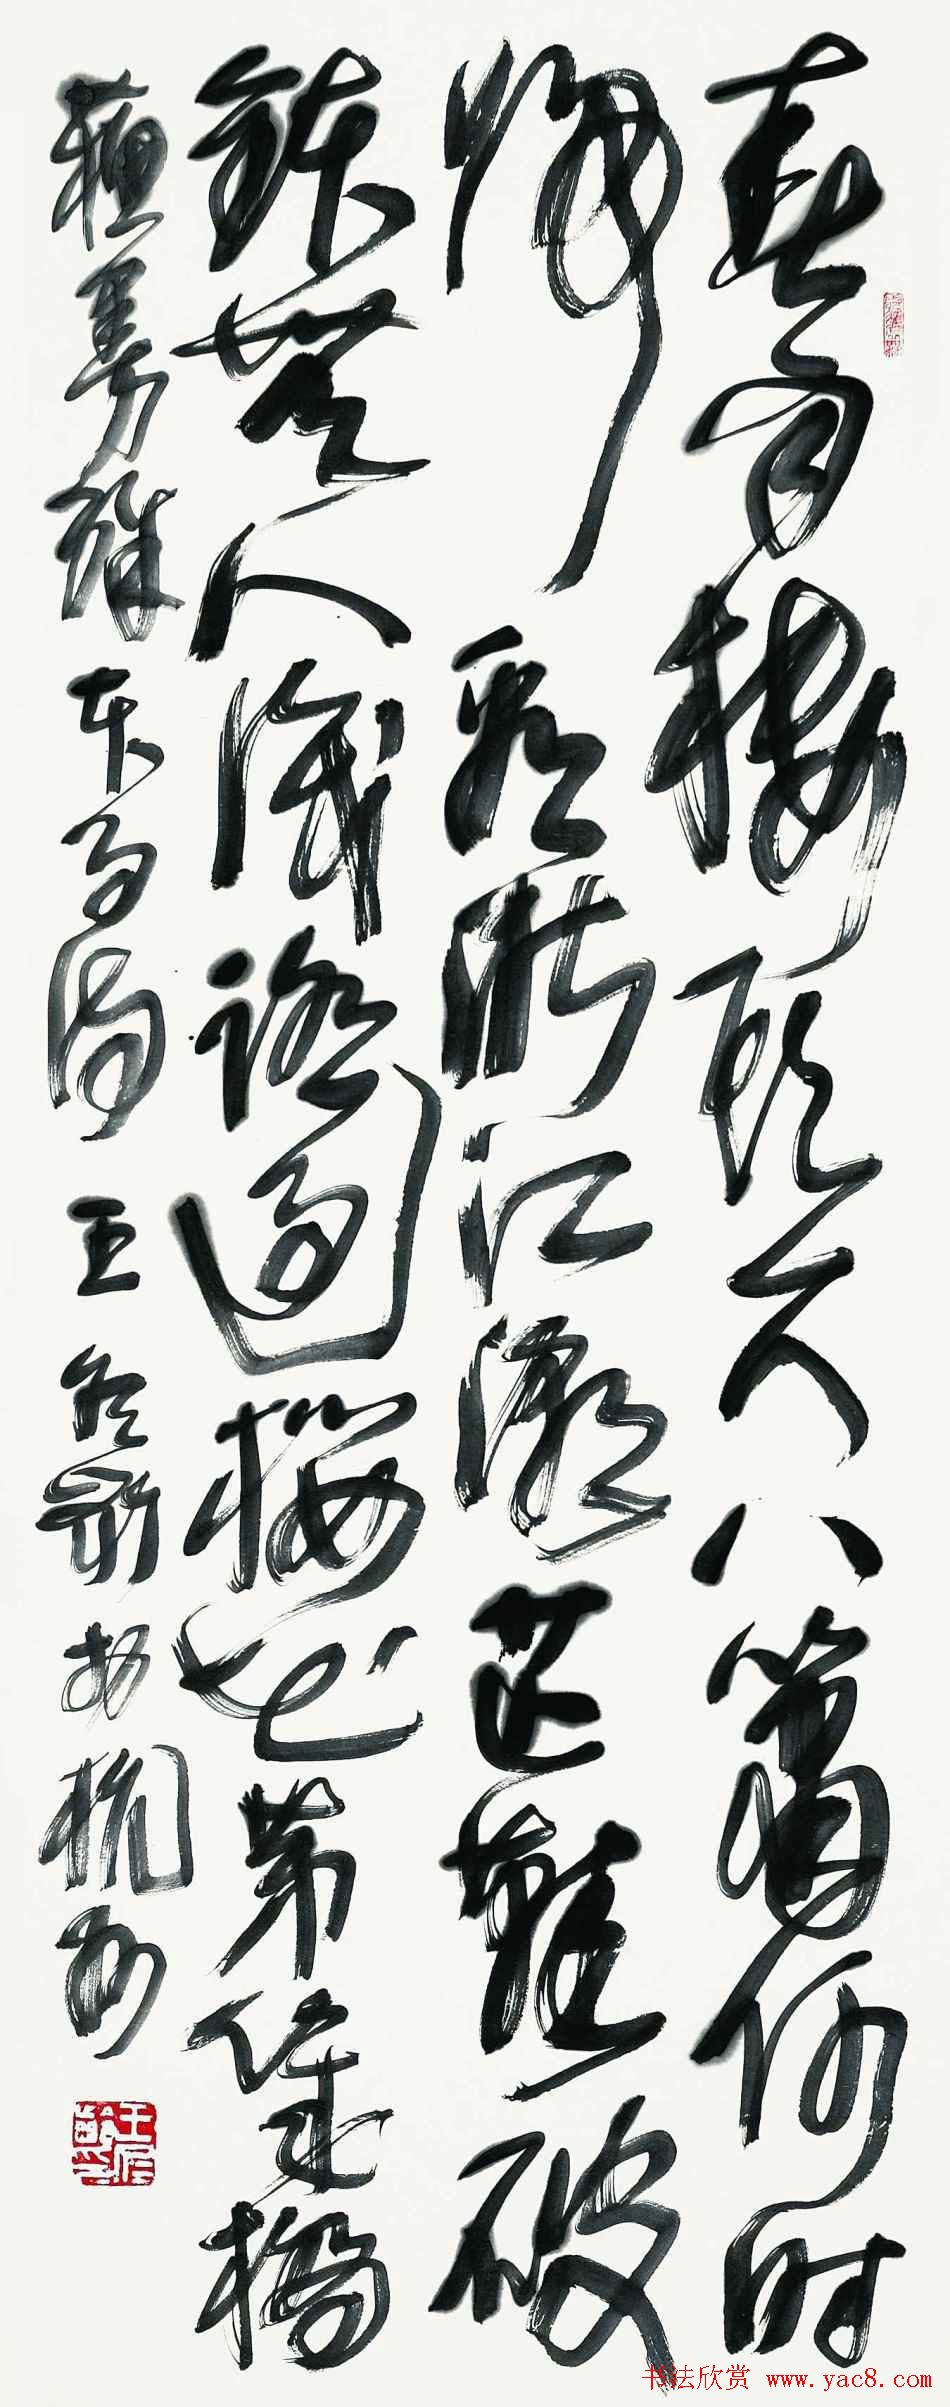 春雨楼头尺八箫何时
归看浙江潮芒鞋破
钵无人识踏过樱花第几桥
苏曼殊本事诗 王冬龄于杭州
书法欣赏 www.yac8.com